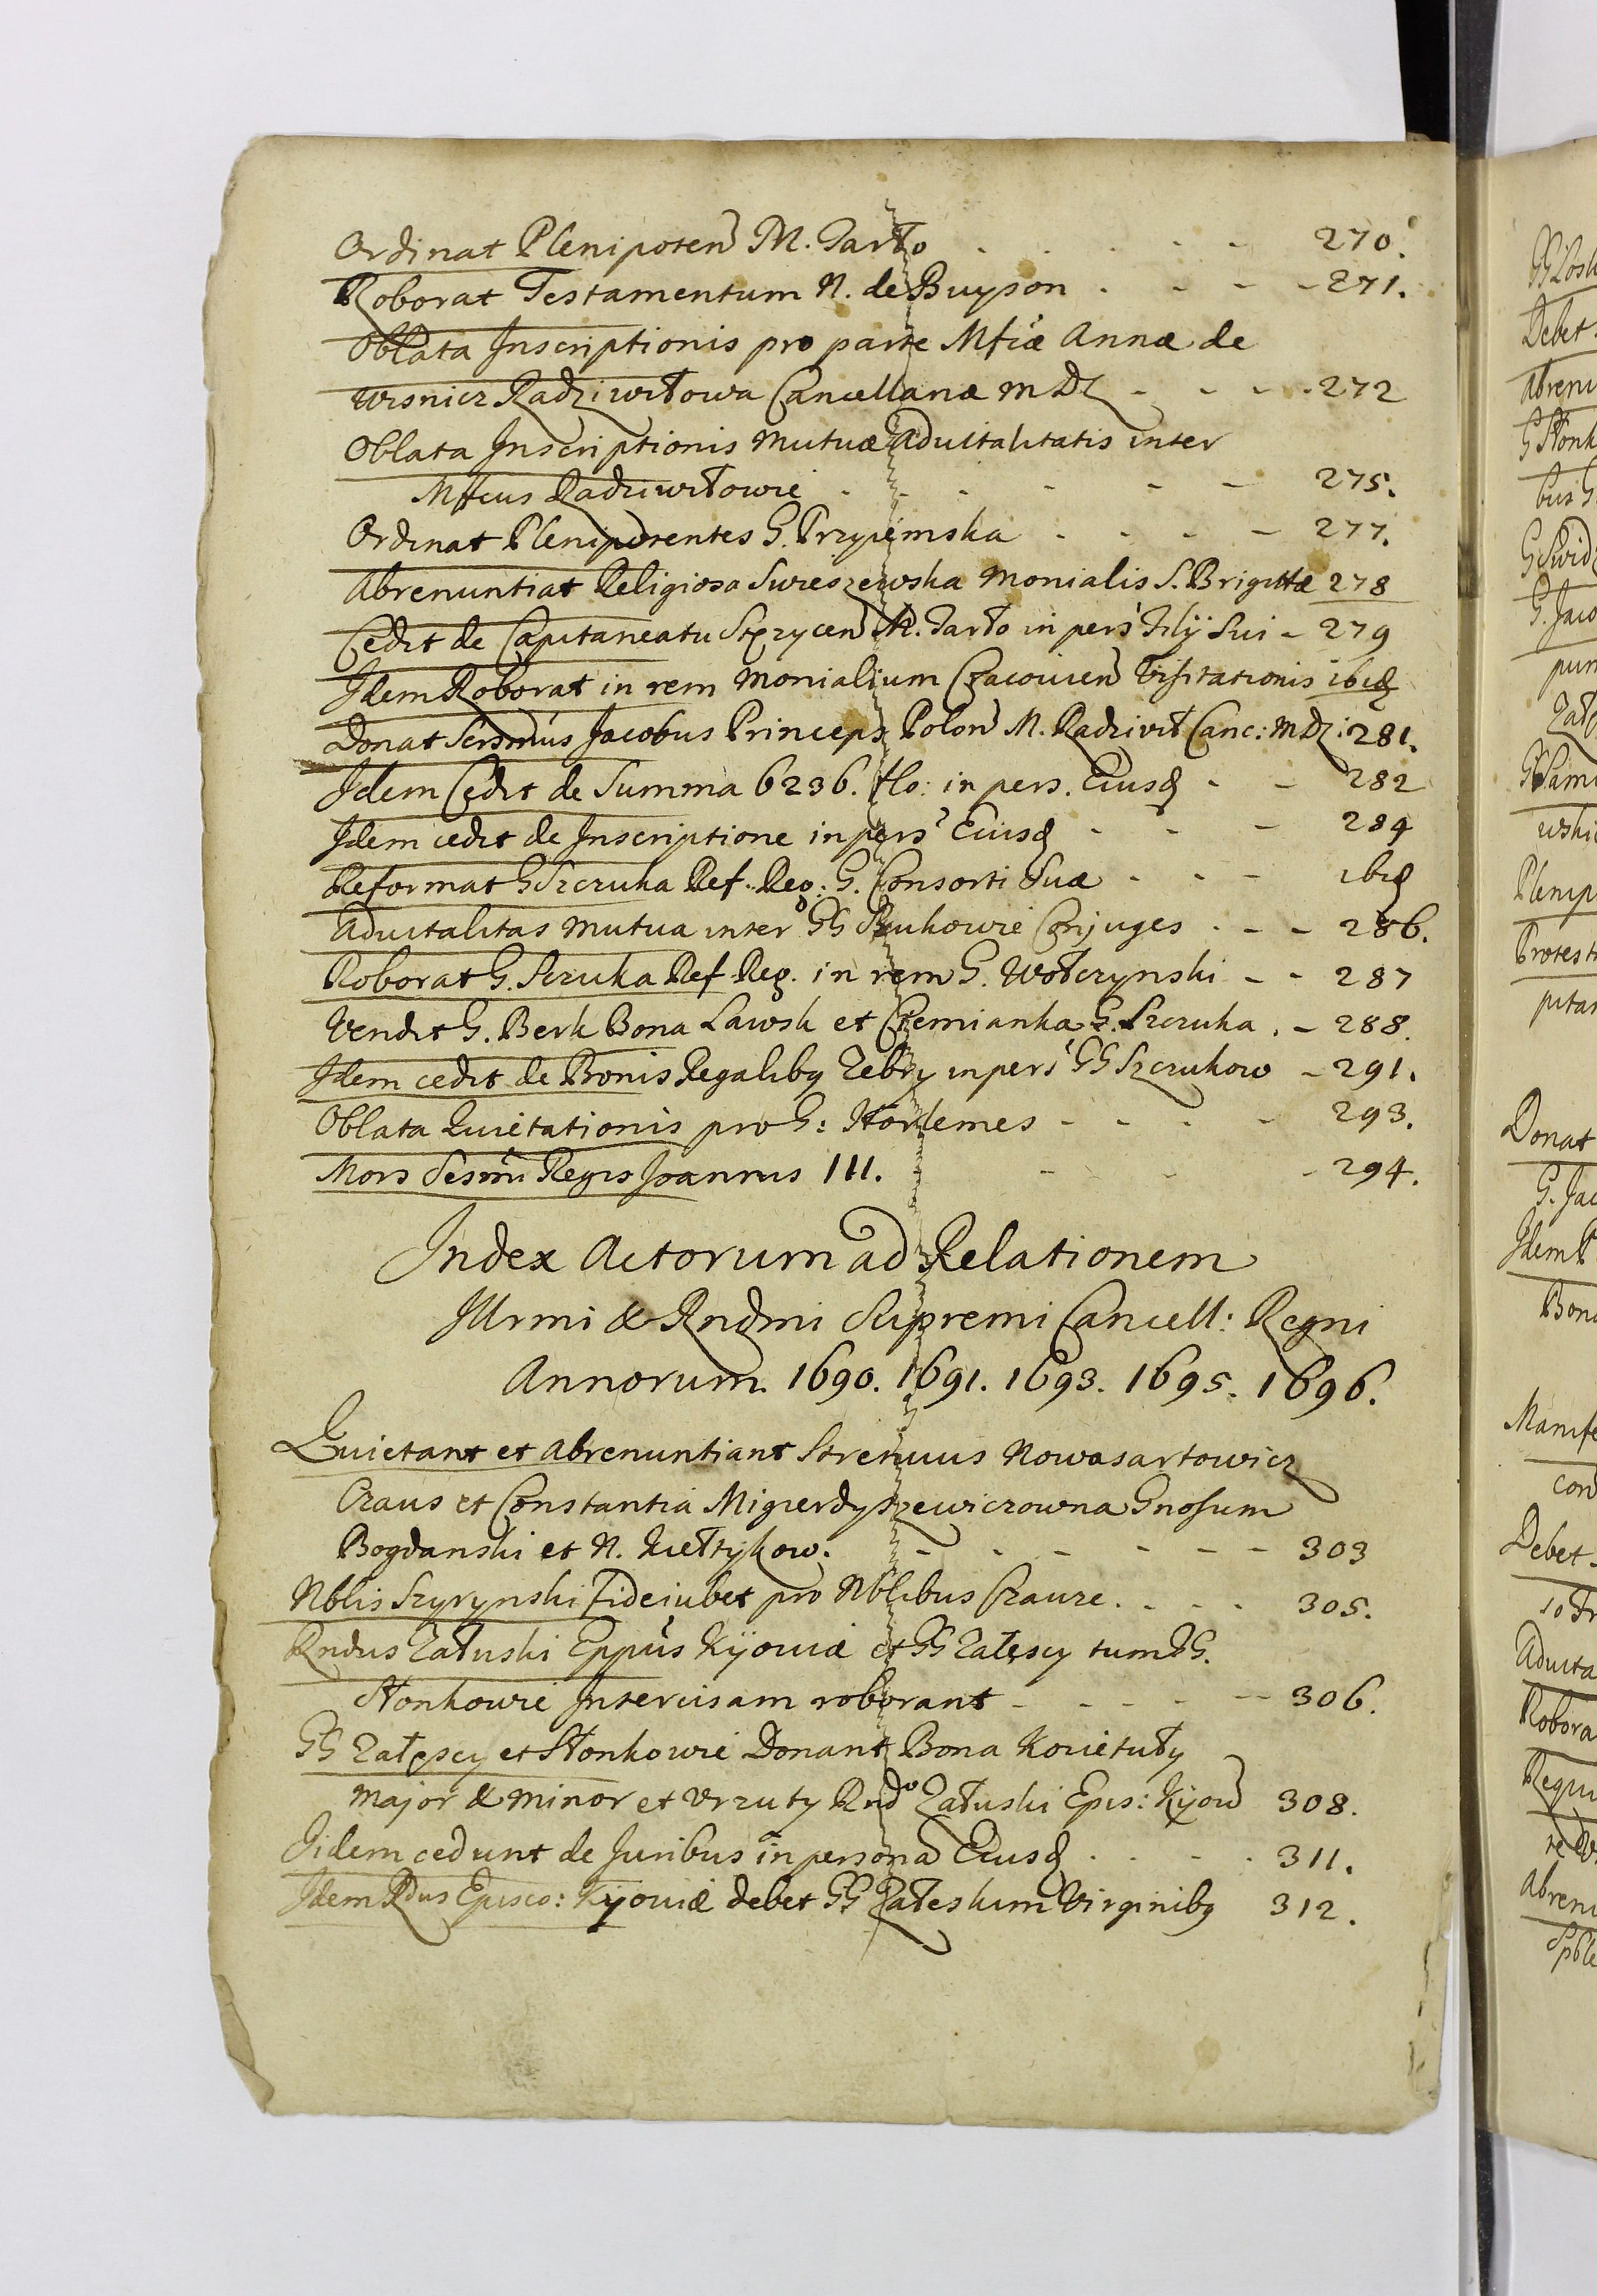 Ordinat Plenipoten M. Tarło - - - - 270.
Roborat Testamentum N. de Buyson - - - - 271.
Oblata Inscriptionis pro parte Mfcæ Annæ de
Wisnicz Radziwiłowa Cancellariæ M D L - - - 272
Oblata Inscriptionis mutuæ advitalitatis inter
Mfcus Radziwiłowie - - - - - - 275.
Ordinat Plenipotentes G. Przyiemska - - - - 277.
Abrenuntiat Religiosa Swieszewska Monialis S. Brigittæ 278
Cedit de Capitaneatu Stężycen M. Tarło in pers Filÿ Sui - 279
Idem Roborat in rem Monialium Cracovien Visitationis ibid
Donat Sermus Jacobus Princeps Polon M. Radziwił Canc: M D L: 281.
Idem Cedit de Summa 6236. flo: in pers. Eiusd - - 282
Idem cedit de Inscriptione in pers Eiusd - - - 284
Reformat G Szczuka Ref: Reg: G. Consorti Suæ - - - ibid
Advitalitas mutua inter GG Szczukowie Conjuges - - - 286.
Roborat G. Szczuka Ref Reg. in rem G. Wołczynski - - 287
Vendit G. Berk Bona Lawsk et Ciemianka G. Szczuka . - 288.
Idem cedit de Bonis Regalibq Zebry in pers GG Szczukow - 291.
Oblata Quietationis pro G: - - - - 293.
Mors Sesmi Regis Joannis III. - - - - 294.
Index Actorum ad Relationem
Illrmi & Rndmi Supremi Cancell: Regni
Annorum. 1690. 1691. 1693. 1695. 1696.
Quietant et Abrenuntiant Strenuus Nowasartowicz
Czaus et Constantia Migierdyszewiczowna Gnosum
Bogdanski et N. - - - - - - 303
Nblis Szyrynski Fideiubet pro Nblibus Czauze. - - - 305.
Rndus Załuski Eppus Kÿoviæ et GG Załęscy tum GG.
Słonkowie Intercisam roborant - - - - - 306.
GG Załęscy et Słonkowie Donant Bona Kowietuły
Major & Minor et Wrzuty Rndo Załuski Epis: Kÿow 308.
Iidem cedunt de Juribus in persona Eiusd - - - - 311.
Idem Rdus Episco: Kÿoviæ debet GG Załeskim Virginibq 312.